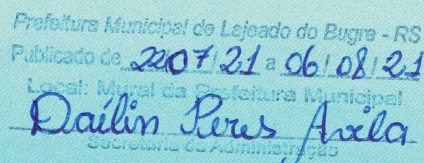 Prefeitura Municipal de Lajeado do Bugre - RS
Publicado de 22/07/21 a 06/08/21
Local: Mural da Prefeitura Municipal
Dailin Peres Avila
Secretaria da Administração